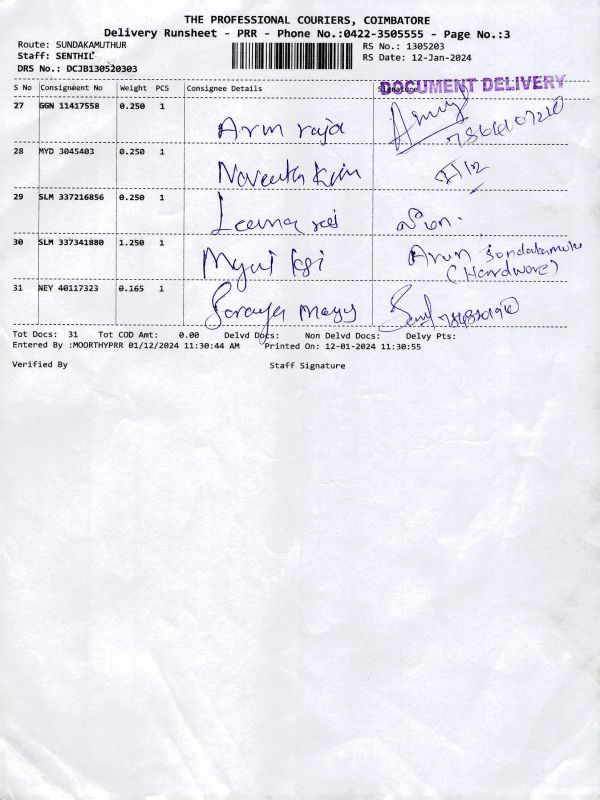 THE PROFESSIONAL COURIERS, COIMBATORE
Delivery Runsheet - PRR - Phone No.:0422-3505555 - Page No.:3
Route: SUNDAKAMUTHUR RS No.: 1305203
Staff: SENTHIL RS Date: 12-Jan-2024
DRS No.: DCJB130520303
DOCUMENT DELIVERY
S No Consignment No Weight PCS Consignee Details Signature
27 GGN 11417558 0.250 1
Arun raja
28 MYD 3045403 0.250 1
29 SLM 337216856 0.250 1
Leema
30 SLM 337341880 1.250 1
Arun Sundakamuthu
(Hardware)
31 NEY 40117323 0.165 1
Tot Docs: 31 Tot COD Amt: 0.00 Delvd Docs: Non Delvd Docs: Delvy Pts:
Entered By :MOORTHYPRR 01/12/2024 11:30:44 AM Printed On: 12-01-2024 11:30:55
Verified By Staff Signature